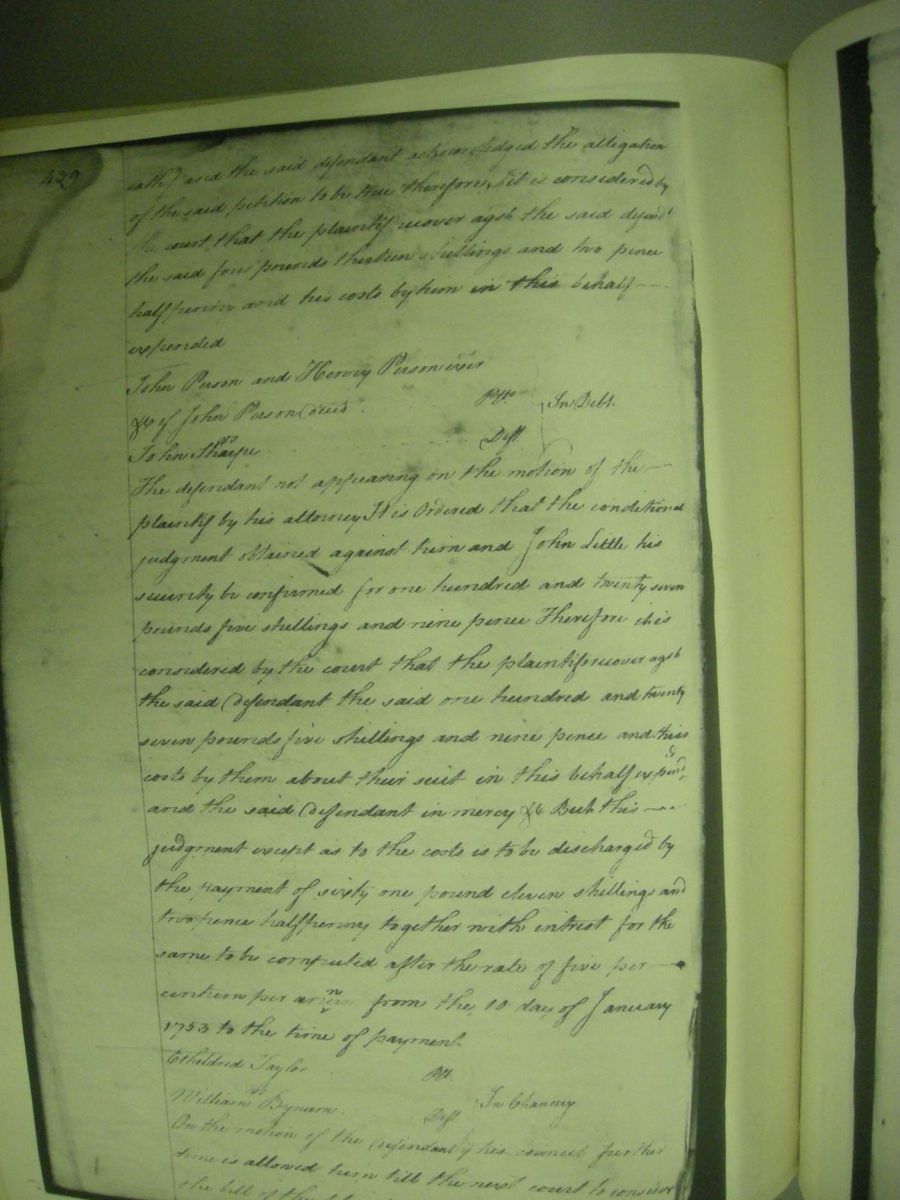 429
oath) and the said defendant acknowledged the alligation
of the said petition to be true therefore it is considered by
the court that the plaintif recover agst the said defendt
the said four pounds thirteen shillings and two pence
halfpenny and his costs by him in this behalf
expended
John Person and Hervey Person exer
&c of John Person decd Plts
vs In Debt
John Sharpe Deft
The defendant not appearing on the motion of the
plaintif by his attorney It is Ordered that the conditional
judgment obtained against him and John Little his
security be confirmed for one hundred and twenty seven
pounds five shillings and nine pence Therefore it is
considered by the court that the plaintif recover agst
the said Defendant the said one hundred and twenty
seven pounds five shillings and nine pence and their
costs by them about their suit in this behalf expended
and the said Defendant in mercy &c But this
judgment except as to the costs is to be discharged by
the payment of sixty one pound eleven shillings and
two pence halfpenny together with intrest for the
same to be computed after the rate of five per
centum per annum from the 10 day of January
1753 to the time of payment
Etheldred Taylor Plt.
vs In Chancery
William Bynum Deft
On the motion of the defendant by his councel further
time is allowed him till the next court to consider
the bill of the